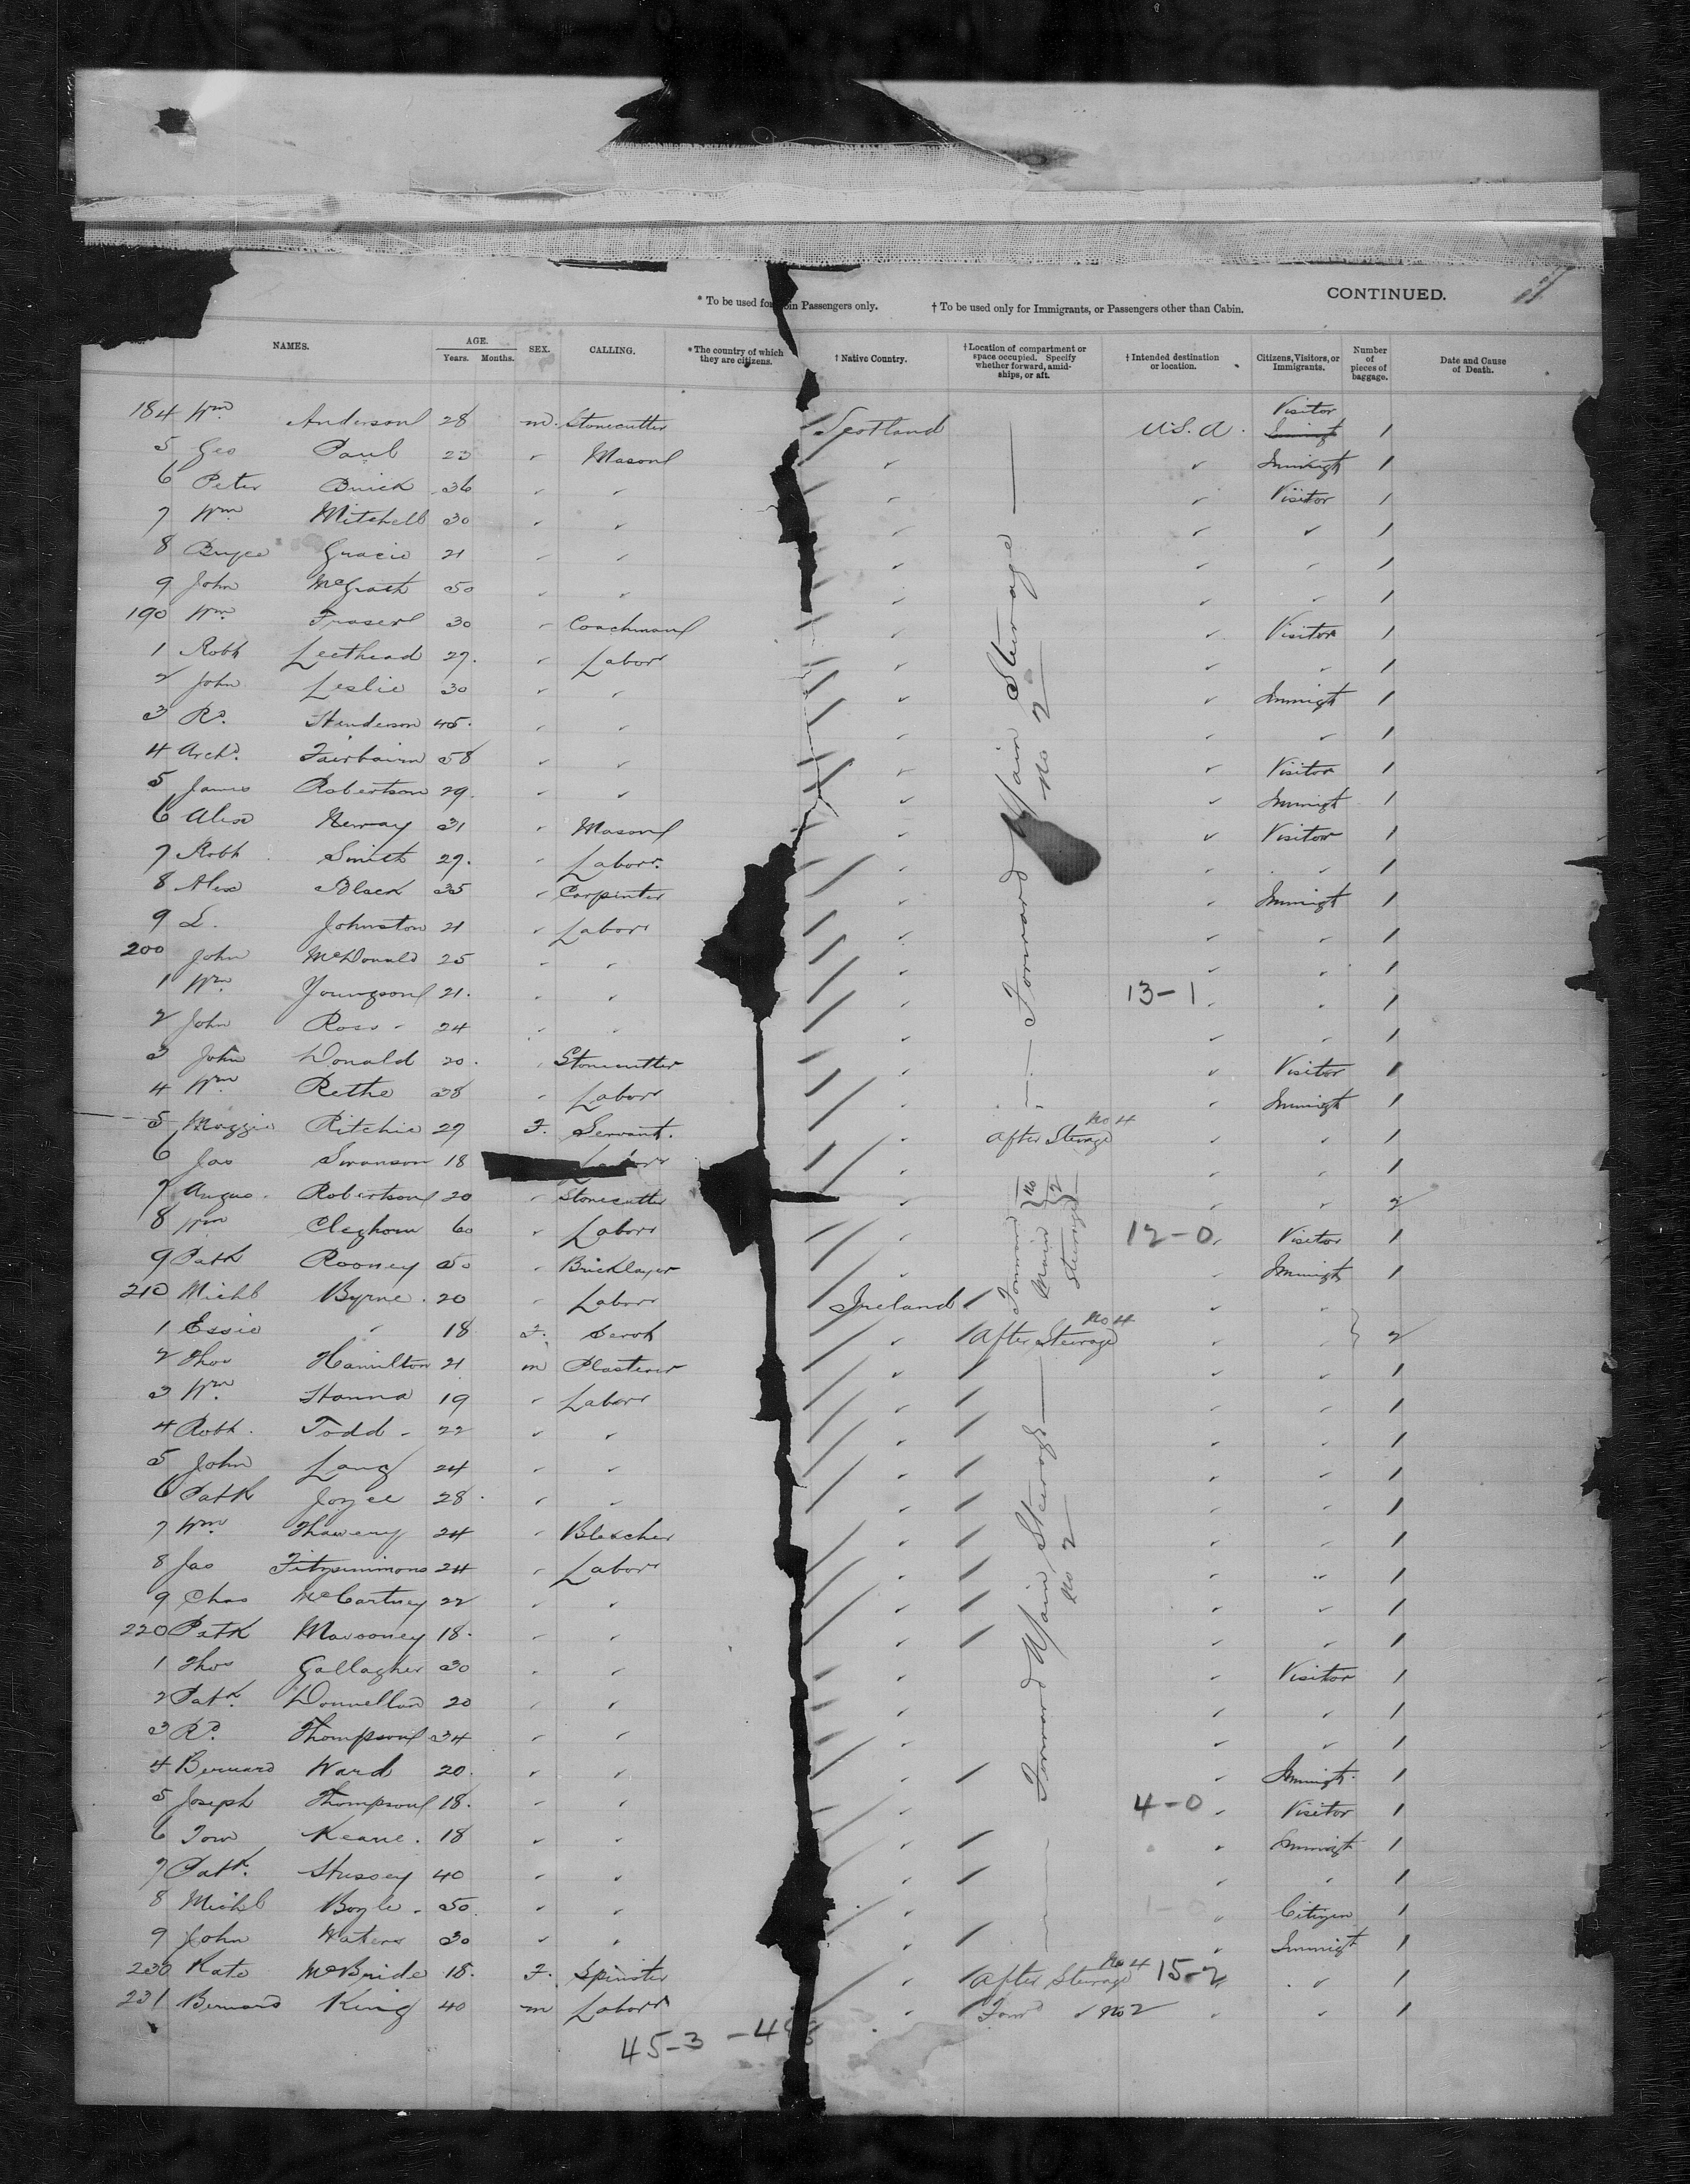 CONTINUED.
* To be used for Cabin Passengers only. † To be used only for Immigrants, or Passengers other than Cabin.
NAMES. AGE. Years. Months. SEX. CALLING. *The country of which they are citizens. † Native Country. †Location of compartment or space occupied. Specify whether forward, amidships, or aft. † Intended destination or location. Citizens, Visitors, or Immigrants. Number of pieces of baggage. Date and Cause of Death.
184 Wm Anderson 28 m. Stonecutter Scotland U.S.A. Visitor Immigt 1
5 Geo Paul 23 " Mason " " Immigt 1
6 Peter 36 " " " " Visitor 1
7 Wm Mitchell 30 " " " " " 1
8 Bryce Gracie 21 " " " " " 1
9 John McGrath 50 " " " " " 1
190 Wm Fraser 30 " Coachman " " Visitor 1
1 Robt Leethead 27. " Labor " " " 1
2 John Leslie 30 " " " " Immigt 1
3 Rd. Henderson 45. " " " " " 1
4 Archd. Fairbairn 58 " " " " Visitor 1
5 James Robertson 29. " " " " Immigt 1
6 Alex 31 " Mason " " Visitor 1
7 Robt Smith 27. " Labor. " " " 1
8 Alex Black 35 " Carpenter " " Immigt 1
9 L. Johnston 21 " Labor " " " 1
200 John McDonald 25 " " " " " 1
1 Wm. Youngson 21. " " " 13-1 " " 1
2 John Ross 24 " " " " " 1
3 John Donald 20. " Stonecutter " " Visitor 1
4 Wm Rethe 38 " Labor " " Immigt 1
Forward Main Steerage No 2
5 Maggie Ritchie 27 F. Servant. " After Steerage No 4 " " 1
6 Jas Swanson 18 Labor " " " 1
7 Angus Robertson 20 " Stonecutter " " " 2
8 Wm Cleghorn 60 " Labor " 12-0 " Visitor 1
9 Patk Rooney 50 " Bricklayer " " Immigt 1
Forward Main Steerage No 2
210 Michl Byrne. 20 " Labor Ireland " "
1 Essie " 18 F. Servt " After Steerage No 4 " " 2
2 Thos Hamilton 21 m Plasterer " " " 1
3 Wm. Hanna 19 " Labor " " " 1
4 Robt. Todd 22 " " " " " 1
5 John Lang 24 " " " " " 1
6 Patk Joyce 28. " " " " " 1
7 Wm 24 " Bleacher " " " 1
8 Jas Fitzsimmons 24 " Labor " " " 1
9 Chas McCartney 22 " " " " " 1
220 Patk 18. " " " " " 1
1 Thos Gallagher 30 " " " " Visitor 1
2 Patk. Donnellan 20 " " " " " 1
3 Rd. Thompson 34 " " " " " 1
4 Bernard Ward 20. " " " " Immigt. 1
5 Joseph Thompson 18. " " " 4-0 " Visitor 1
6 Tom Keane. 18 " " " " Immigt 1
7 Patk. 40 " " " " " 1
8 Michl Boyle. 50. " " " 1-0 " Citizen 1
9 John Waters 30 " " " " Immigt 1
Forward Main Steerage No 2
230 Kate McBride 18. F. Spinster " After Steerage No 4 15-2 " " 1
231 Bernard King 40 m Labor " Forwd " No 2 " " 1
45-3